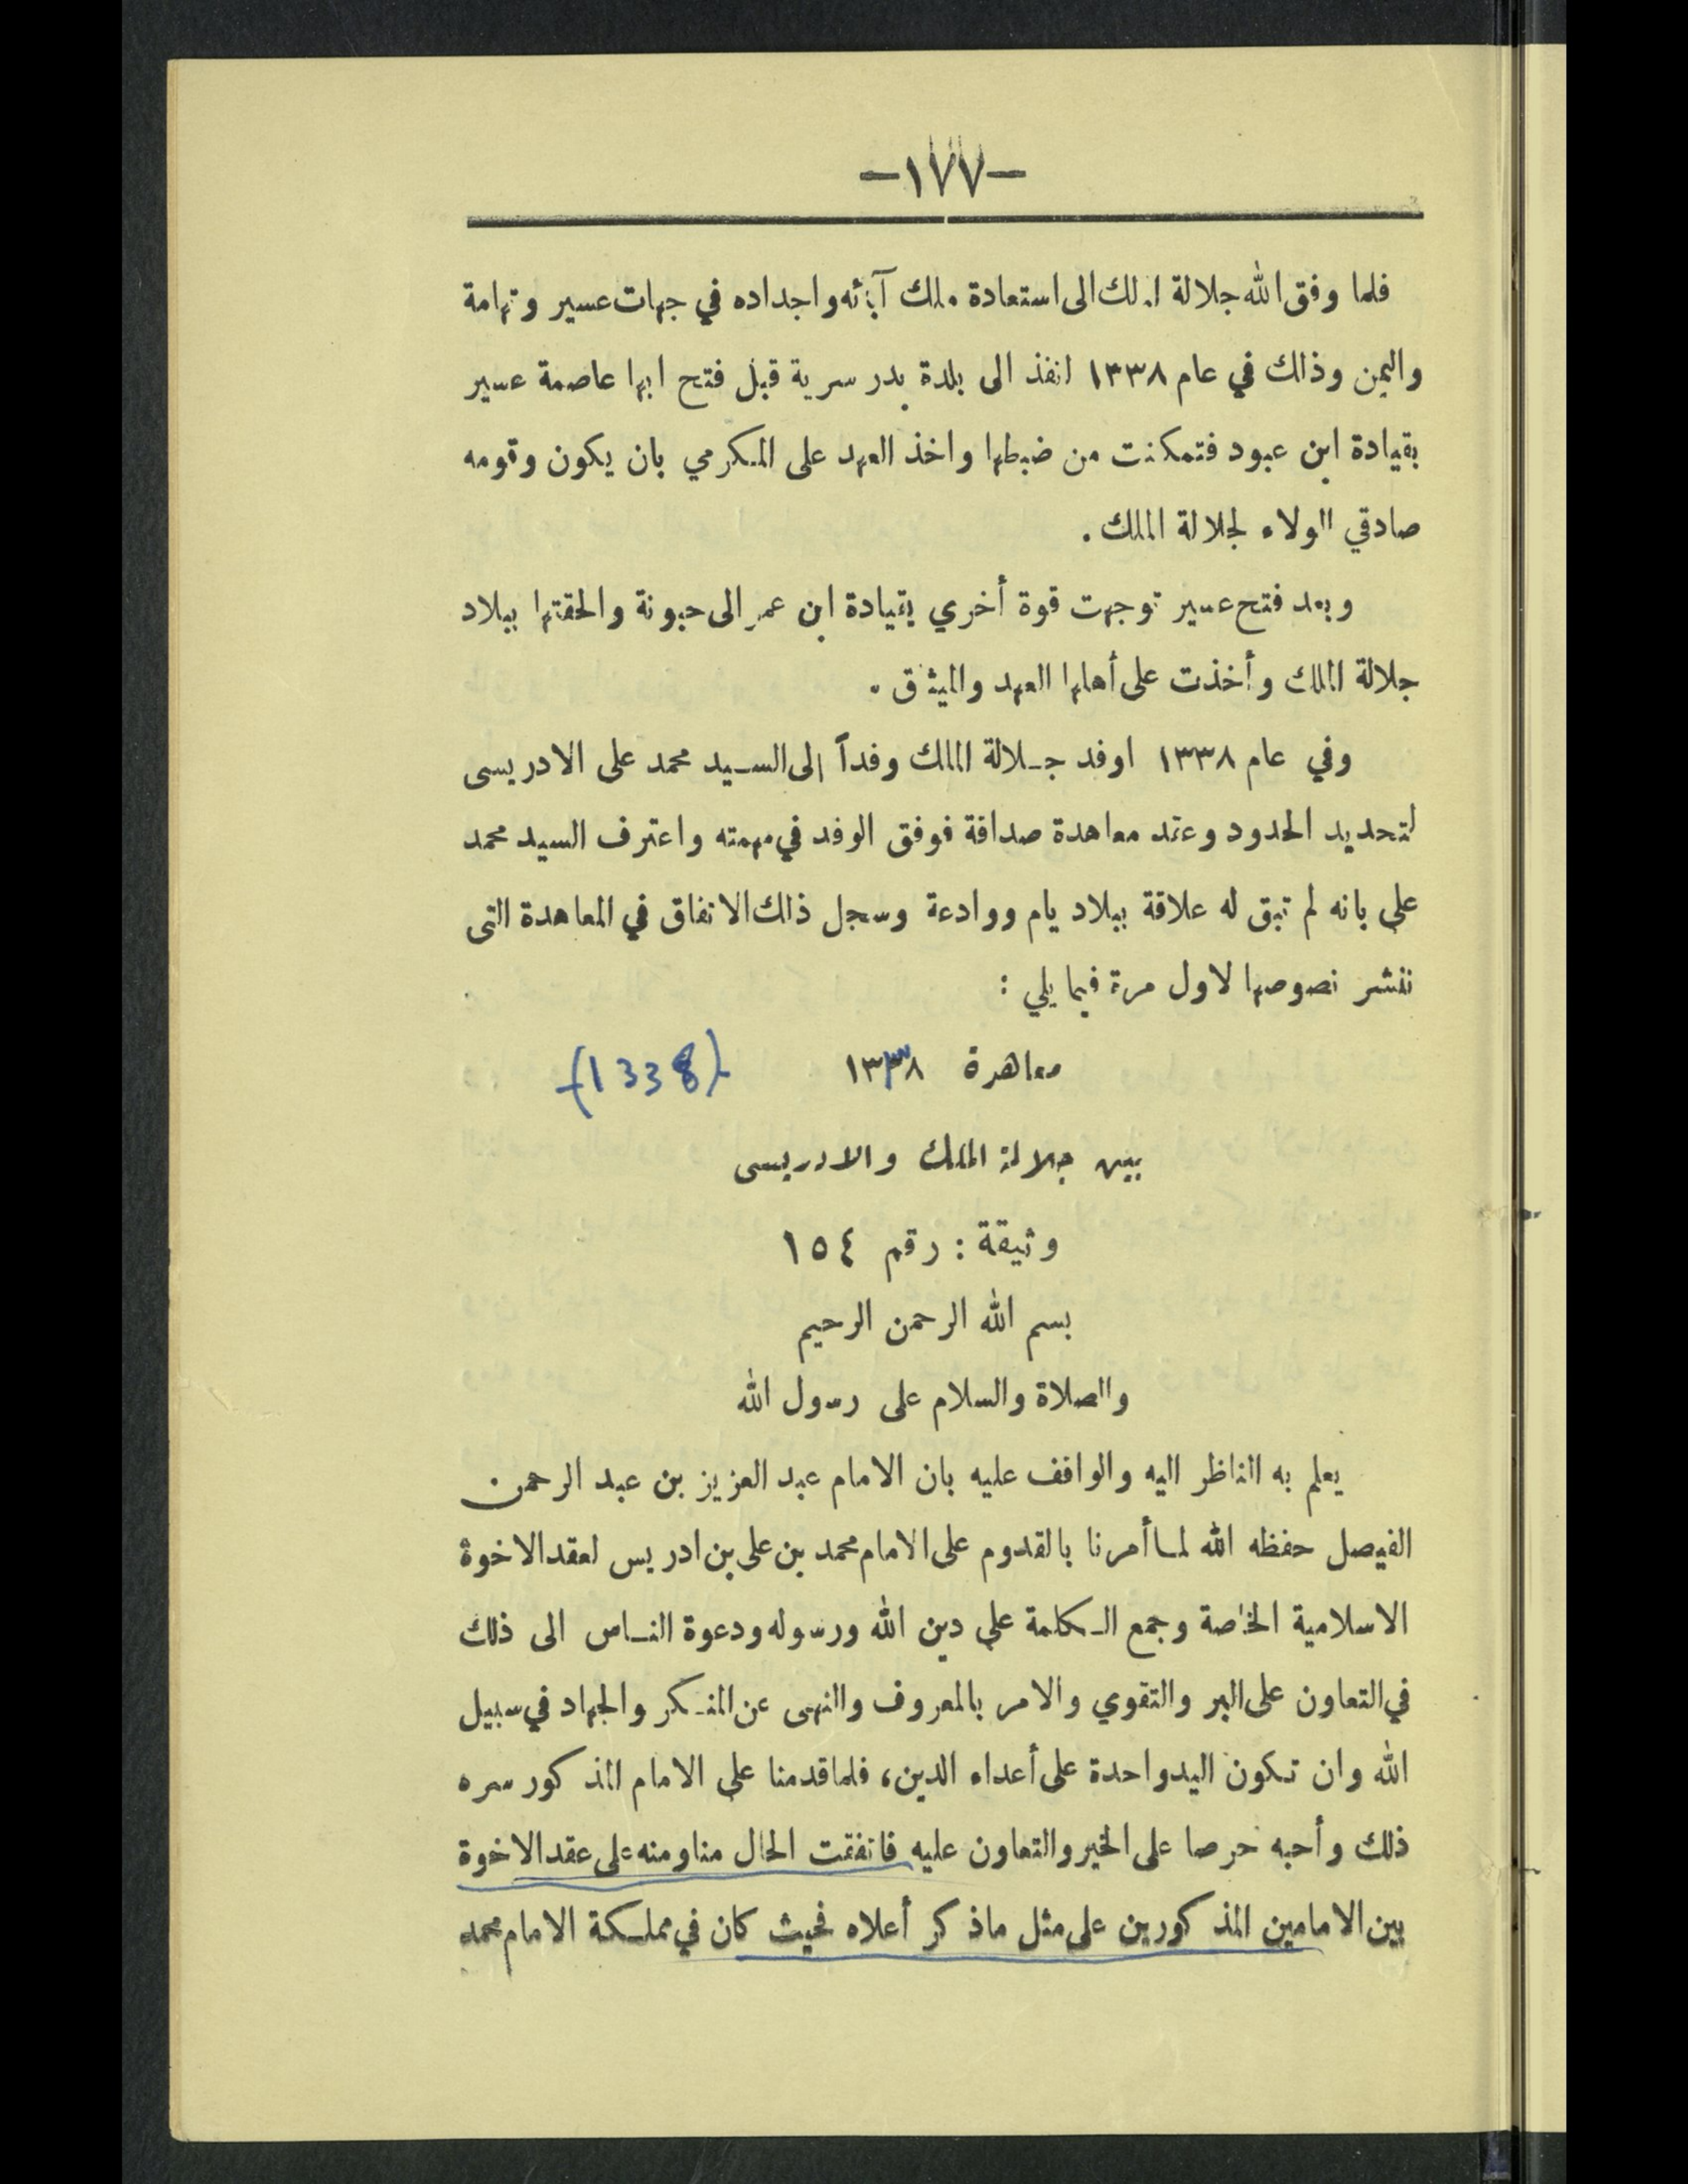 -١٧٧-
فلما وفق الله جلالة الملك الى استعادة ملك آبائه واجداده في جهات عسير وتهامة
واليمن وذلك في عام ١٣٣٨ انفذ الى بلدة بدر سرية قبل فتح ابها عاصمة عسير
بقيادة ابن عبود فتمكنت من ضبطها واخذ العهد على المكرمي بان يكون وقومه
صادقي الولاء لجلالة الملك .
وبعد فتح عسير توجهت قوة أخري بقيادة ابن عمر الى حبونة والحقتها ببلاد
جلالة الملك وأخذت على أهلها العهد والميثاق .
وفي عام ١٣٣٨ اوفد جلالة الملك وفداً إلى السيد محمد على الادريسى
لتحديد الحدود وعقد معاهدة صداقة فوفق الوفد في مهمته واعترف السيد محمد
على بانه لم تبق له علاقة ببلاد يام ووادعة وسجل ذلك الاتفاق في المعاهدة التى
ننشر نصوصها لاول مرة فيما يلي :
معاهدة ١٣٣٨ (1338)
بين جلالة الملك والادريسى
وثيقة : رقم ١٥٤
بسم الله الرحمن الرحيم
والصلاة والسلام على رسول الله
يعلم به الناظر اليه والواقف عليه بان الامام عبد العزيز بن عبد الرحمن
الفيصل حفظه الله لما أمرنا بالقدوم على الامام محمد بن على بن ادريس لعقد الاخوة
الاسلامية الخاصة وجمع الكلمة على دين الله ورسوله ودعوة الناس الى ذلك
في التعاون على البر والتقوي والامر بالمعروف والنهى عن المنكر والجهاد في سبيل
الله وان تكون اليد واحدة على أعداء الدين، فلما قدمنا على الامام المذكور سره
ذلك وأحبه حرصا على الخير والتعاون عليه فاتفقت الحال منا ومنه على عقد الاخوة
بين الامامين المذكورين على مثل ماذكر أعلاه فحيث كان في مملكة الامام محمد